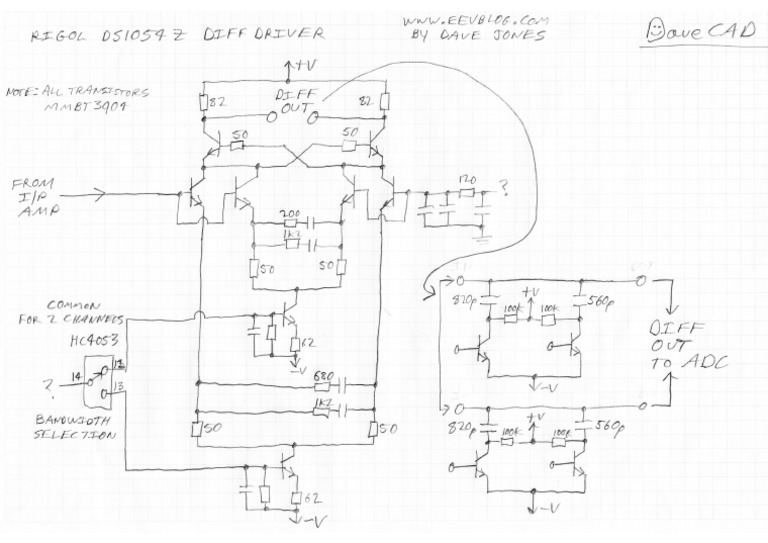 RIGOL DS1054Z DIFF DRIVER
WWW.EEVBLOG.COM
BY DAVE JONES
DaveCAD
NOTE: ALL TRANSISTORS
MMBT3904
+V
82
DIFF
OUT
82
50
50
FROM
I/P
AMP
120
?
200
1K2
50
50
COMMON
FOR 2 CHANNELS
HC4053
62
-V
?
14
12
13
BANDWIDTH
SELECTION
680
1K2
50
50
62
-V
820p
+V
100K
100K
560p
-V
DIFF
OUT
TO ADC
820p
+V
100K
100K
560p
-V